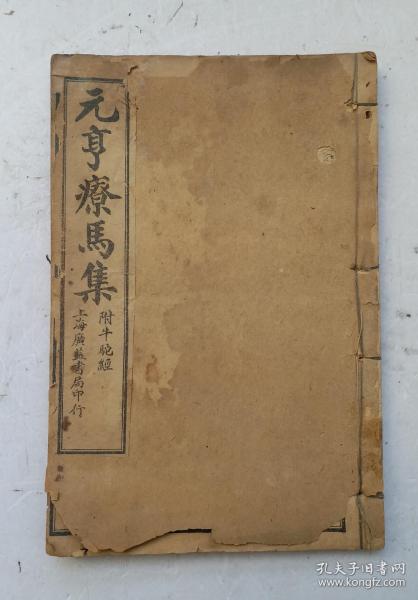 元亨療馬集
附牛駝經
上海廣益書局印行
孔夫子旧书网
www.kongfz.com